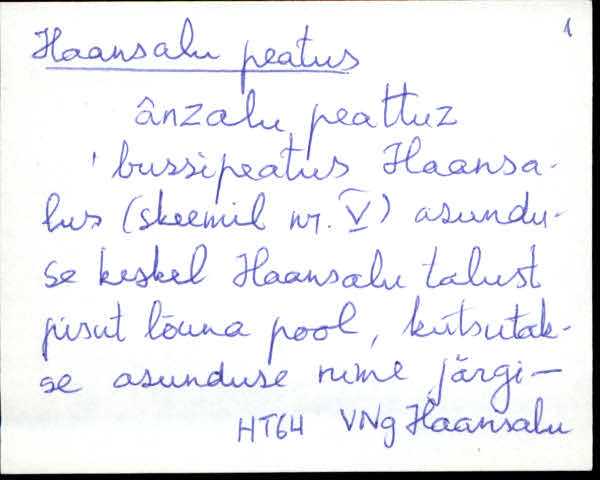 1
Haansalu peatus
ânzalu peattuz
'bussipeatus Haansa-
lus (skeemil nr. V) asundu-
se keskel Haansalu talust
pisut lõuna pool, kutsutak-
se asunduse nime järgi—
HT64 VNg Haansalu